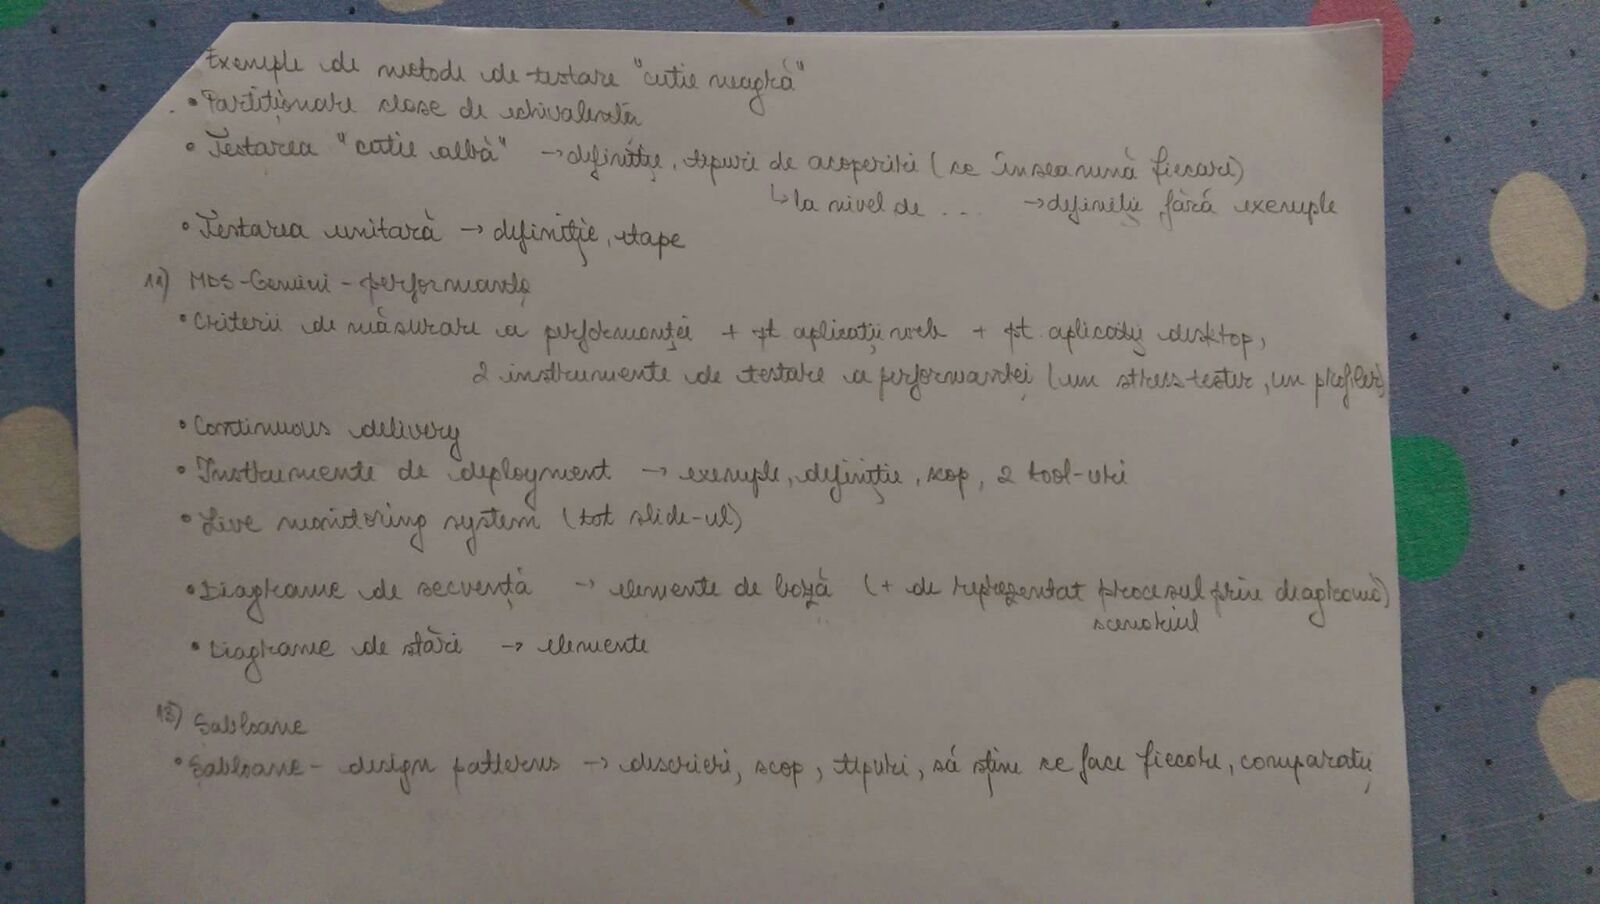 Exemple de metode de testare "cutie neagră"
• Partiționare clase de echivalență
• Testarea "cutie albă" → definiție, tipuri de acoperiri (ce înseamnă fiecare)
↳ la nivel de ... → definiții fără exemple
• Testarea unitară → definiție, etape
11) MDS-Gemini-performanță
• Criterii de măsurare a performanței + pt aplicații web + pt aplicații desktop,
2 instrumente de testare a performanței (un stress-tester, un profiler)
• Continuous delivery
• Instrumente de deployment → exemple, definiție, scop, 2 tool-uri
• Live monitoring system (tot slide-ul)
• Diagrame de secvență → elemente de bază (+ de reprezentat procesul prin diagramă)
scenariul
• Diagrame de stări → elemente
13) Șabloane
• Șabloane - design patterns → descrieri, scop, tipuri, să știm ce face fiecare, comparații